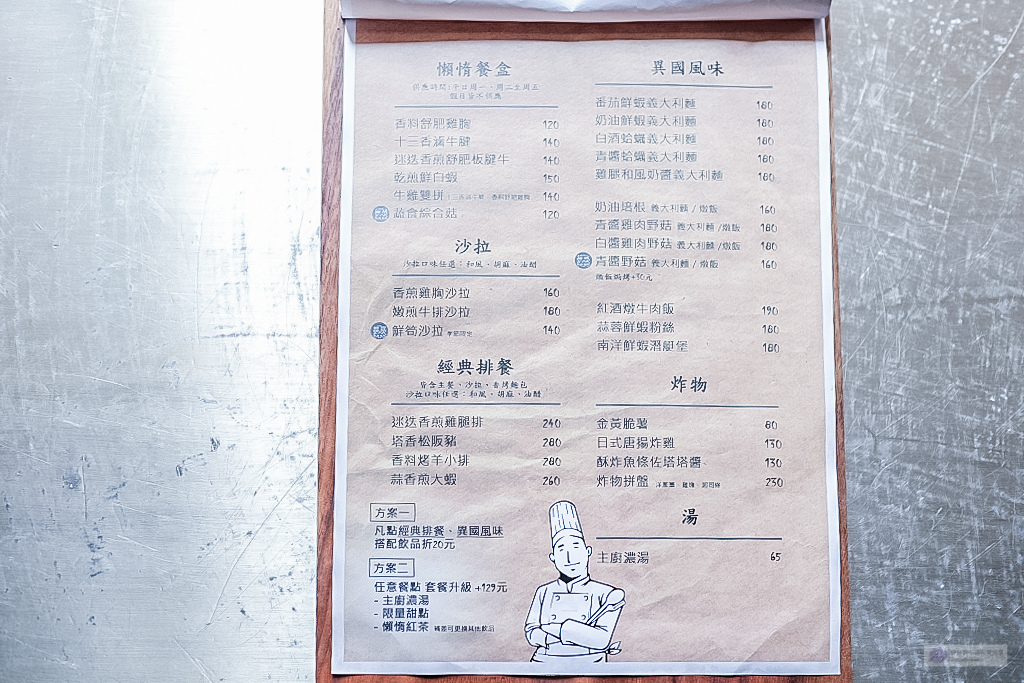 懶惰餐盒
供應時間:平日周一、周二至周五
假日皆不供應
香料舒肥雞胸 120
十三香滷牛腱 140
迷迭香煎舒肥板腱牛 140
乾煎鮮白蝦 150
牛雞雙拼 140
蔬食綜合菇 120
沙拉
沙拉口味任選:和風、胡麻、油醋
香煎雞胸沙拉 160
嫩煎牛排沙拉 180
鮮筍沙拉 季節限定 140
經典排餐
皆含主餐、沙拉、香烤麵包
沙拉口味任選:和風、胡麻、油醋
迷迭香煎雞腿排 240
塔香松阪豬 280
香料烤羊小排 280
蒜香煎大蝦 260
方案一
凡點經典排餐、異國風味
搭配飲品折20元
方案二
任意餐點 套餐升級 +129元
- 主廚濃湯
- 限量甜點
- 懶惰紅茶 補差可更換其他飲品
異國風味
番茄鮮蝦義大利麵 180
奶油鮮蝦義大利麵 180
白酒蛤蠣義大利麵 180
青醬蛤蠣義大利麵 180
雞腿和風奶醬義大利麵 180
奶油培根 義大利麵 / 燉飯 160
青醬雞肉野菇 義大利麵 / 燉飯 180
白醬雞肉野菇 義大利麵 / 燉飯 180
青醬野菇 義大利麵 / 燉飯 160
燉飯焗烤+30元
紅酒燉牛肉飯 190
蒜蓉鮮蝦粉絲 180
南洋鮮蝦潛艇堡 180
炸物
金黃脆薯 80
日式唐揚炸雞 130
酥炸魚條佐塔塔醬 130
炸物拼盤 洋蔥圈、雞塊、起司條 230
湯
主廚濃湯 65